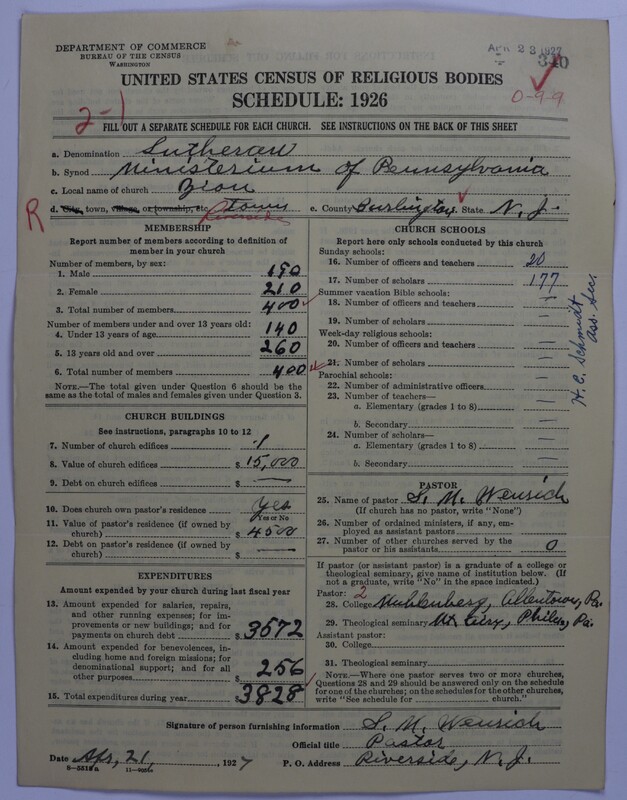 DEPARTMENT OF COMMERCE
BUREAU OF THE CENSUS
WASHINGTON
APR 23 1927
340
UNITED STATES CENSUS OF RELIGIOUS BODIES
SCHEDULE: 1926
0-9-9
2-1
FILL OUT A SEPARATE SCHEDULE FOR EACH CHURCH. SEE INSTRUCTIONS ON THE BACK OF THIS SHEET
a. Denomination Lutheran
b. Synod Ministerium of Pennsylvania
c. Local name of church Zion
R
d. City, town, village, or township, etc. Town
Riverside
e. County Burlington State N. J.
MEMBERSHIP
Report number of members according to definition of member in your church
Number of members, by sex:
1. Male 190
2. Female 210
3. Total number of members 400
Number of members under and over 13 years old:
4. Under 13 years of age 140
5. 13 years old and over 260
6. Total number of members 400
NOTE.—The total given under Question 6 should be the
same as the total of males and females given under Question 3.
CHURCH BUILDINGS
See instructions, paragraphs 10 to 12
7. Number of church edifices 1
8. Value of church edifices $ 15,000
9. Debt on church edifices $ —
10. Does church own pastor's residence Yes
Yes or No
11. Value of pastor's residence (if owned by
church) $ 4500
12. Debt on pastor's residence (if owned by
church) $ —
EXPENDITURES
Amount expended by your church during last fiscal year
13. Amount expended for salaries, repairs,
and other running expenses; for im-
provements or new buildings; and for
payments on church debt $ 3572
14. Amount expended for benevolences, in-
cluding home and foreign missions; for
denominational support; and for all
other purposes $ 256
15. Total expenditures during year $ 3828
CHURCH SCHOOLS
Report here only schools conducted by this church
Sunday schools:
16. Number of officers and teachers 20
17. Number of scholars 177
Summer vacation Bible schools:
18. Number of officers and teachers —
19. Number of scholars —
Week-day religious schools:
20. Number of officers and teachers —
21. Number of scholars —
Parochial schools:
22. Number of administrative officers —
23. Number of teachers—
a. Elementary (grades 1 to 8) —
b. Secondary —
24. Number of scholars—
a. Elementary (grades 1 to 8) —
b. Secondary —
H. C. Schmidt
Ass. Sec.
PASTOR
25. Name of pastor S. M. Wenrich
(If church has no pastor, write "None")
26. Number of ordained ministers, if any, em-
ployed as assistant pastors
27. Number of other churches served by the
pastor or his assistants 0
If pastor (or assistant pastor) is a graduate of a college or
theological seminary, give name of institution below. (If
not a graduate, write "No" in the space indicated.)
Pastor: 2
28. College Muhlenberg, Allentown, Pa.
29. Theological seminary Mt. Airy, Phila, Pa.
Assistant pastor:
30. College
31. Theological seminary
NOTE.—Where one pastor serves two or more churches,
Questions 28 and 29 should be answered only on the schedule
for one of the churches; on the schedules for the other churches,
write "See schedule for church."
Signature of person furnishing information S. M. Wenrich
Official title Pastor
Date Apr, 21, 1927
P. O. Address Riverside, N. J.